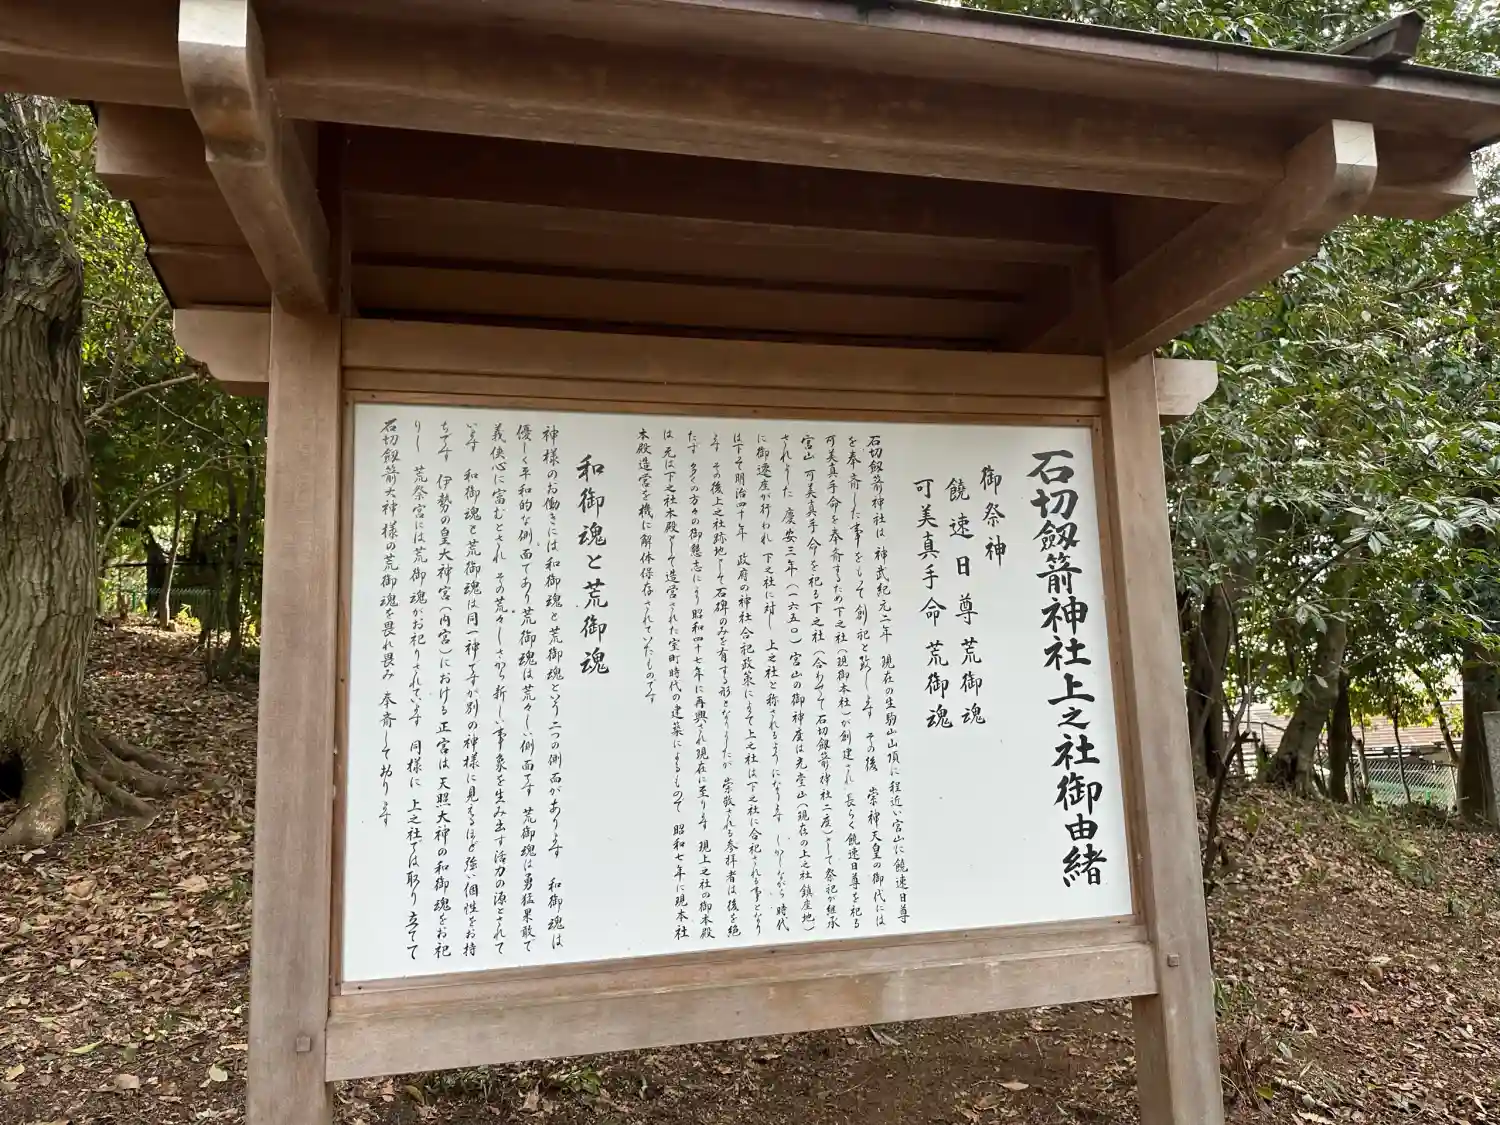 石切劔箭神社上之社御由緒
御祭神
饒速日尊 荒御魂
可美真手命 荒御魂
石切劔箭神社は 神武紀元二年 現在の生駒山山頂に程近い宮山に饒速日尊
を奉斎した事をもって創祀と致します その後 崇神天皇の御代には
可美真手命を奉斎するため下之社(現御本社)が創建され 長らく饒速日尊を祀る
宮山 可美真手命を祀る下之社(合わせて石切劔箭神社二座)として祭祀が継承
されました 慶安三年(一六五〇) 宮山の御神座は光堂山(現在の上之社鎮座地)
に御遷座が行われ 下之社に対し 上之社と称されるようになります しかしながら 時代
は下って明治四十年 政府の神社合祀政策によって上之社は下之社に合祀される事となり
ます その後上之社跡地として石碑のみを有する形となりましたが 崇敬される参拝者は後を絶
たず 多くの方々の御懇志により昭和四十七年に再興され現在に至ります 現上之社の御本殿
は 元は下之社本殿として造営された室町時代の建築によるもので 昭和七年に現本社
本殿造営を機に解体保存されていたものです
和御魂と荒御魂
神様のお働きには和御魂と荒御魂という二つの側面があります 和御魂は
優しく平和的な側面であり 荒御魂は荒々しい側面です 荒御魂は勇猛果敢で
義侠心に富むとされ その荒々しさから新しい事象を生み出す活力の源とされて
います 和御魂と荒御魂は同一神ですが別の神様に見えるほど強い個性をお持
ちです 伊勢の皇大神宮(内宮)における正宮は 天照大神の和御魂をお祀
りし 荒祭宮には荒御魂がお祀りされています 同様に 上之社では取り立てて
石切劔箭大神様の荒御魂を畏れ畏み 奉斎して居ります